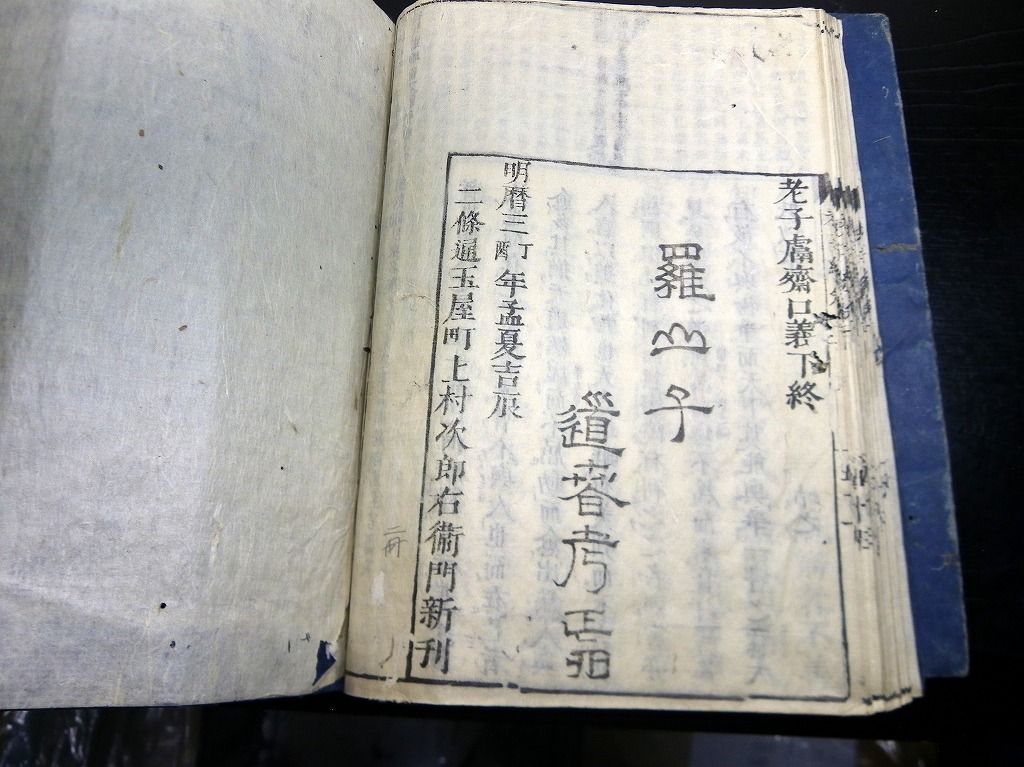 老子鬳齋口義下終
羅山子
道春考正羽
明暦三丁酉年孟夏吉辰
二條通玉屋町上村次郎右衞門新刊
二冊